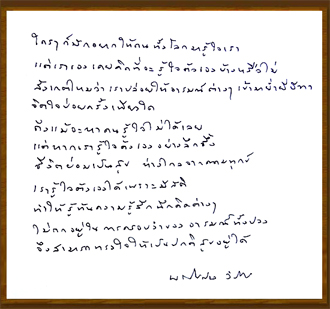 ใครๆ ก็มักอยากให้คนทั้งโลกมารู้ใจเรา
แต่เราเองเคยคิดที่จะรู้ใจตัวเองบ้างหรือไม่
สังเกตไหมว่า เราปล่อยให้อารมณ์ต่างๆ เข้ามาย่ำยี
จิตใจบ่อยครั้งเพียงใด
ถึงแม้จะหาคนรู้ใจไม่ได้เลย
แต่หากเรารู้ใจตัวเองอย่างลึกซึ้ง
ชีวิตย่อมเป็นสุข ห่างไกลจากความทุกข์
เรารู้ใจตัวเองได้เพราะมีสติ
ทำให้รู้ทันความรู้สึกนึกคิดต่างๆ
ไม่ตกอยู่ในการครอบงำของอารมณ์ทั้งปวง
จึงสามารถทรงใจให้เป็นปกติสุขอยู่ได้